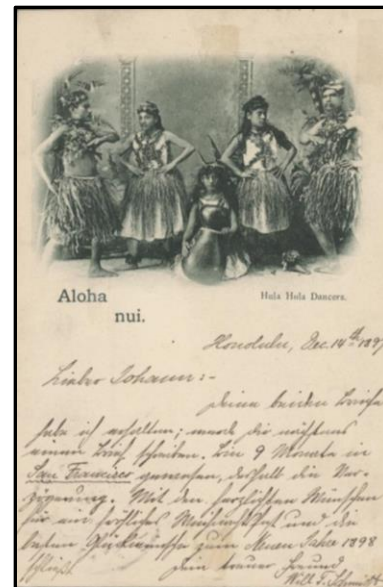 Aloha
nui.
Hula Hula Dancers.
Honolulu, Dec. 14th 1897
Lieber Johann:-
Deine beiden Briefe
habe ich erhalten; werde dir nächstens
einen Brief schreiben. Bin 9 Monate in
San Francisco gewesen, deshalb die Ver-
zögerung. Mit den herzlichsten Wünschen
für ein fröhliches Weihnachtsfest und die
besten Glückwünsche zum Neuen Jahre 1898
schließt dein treuer Freund
Will. F.